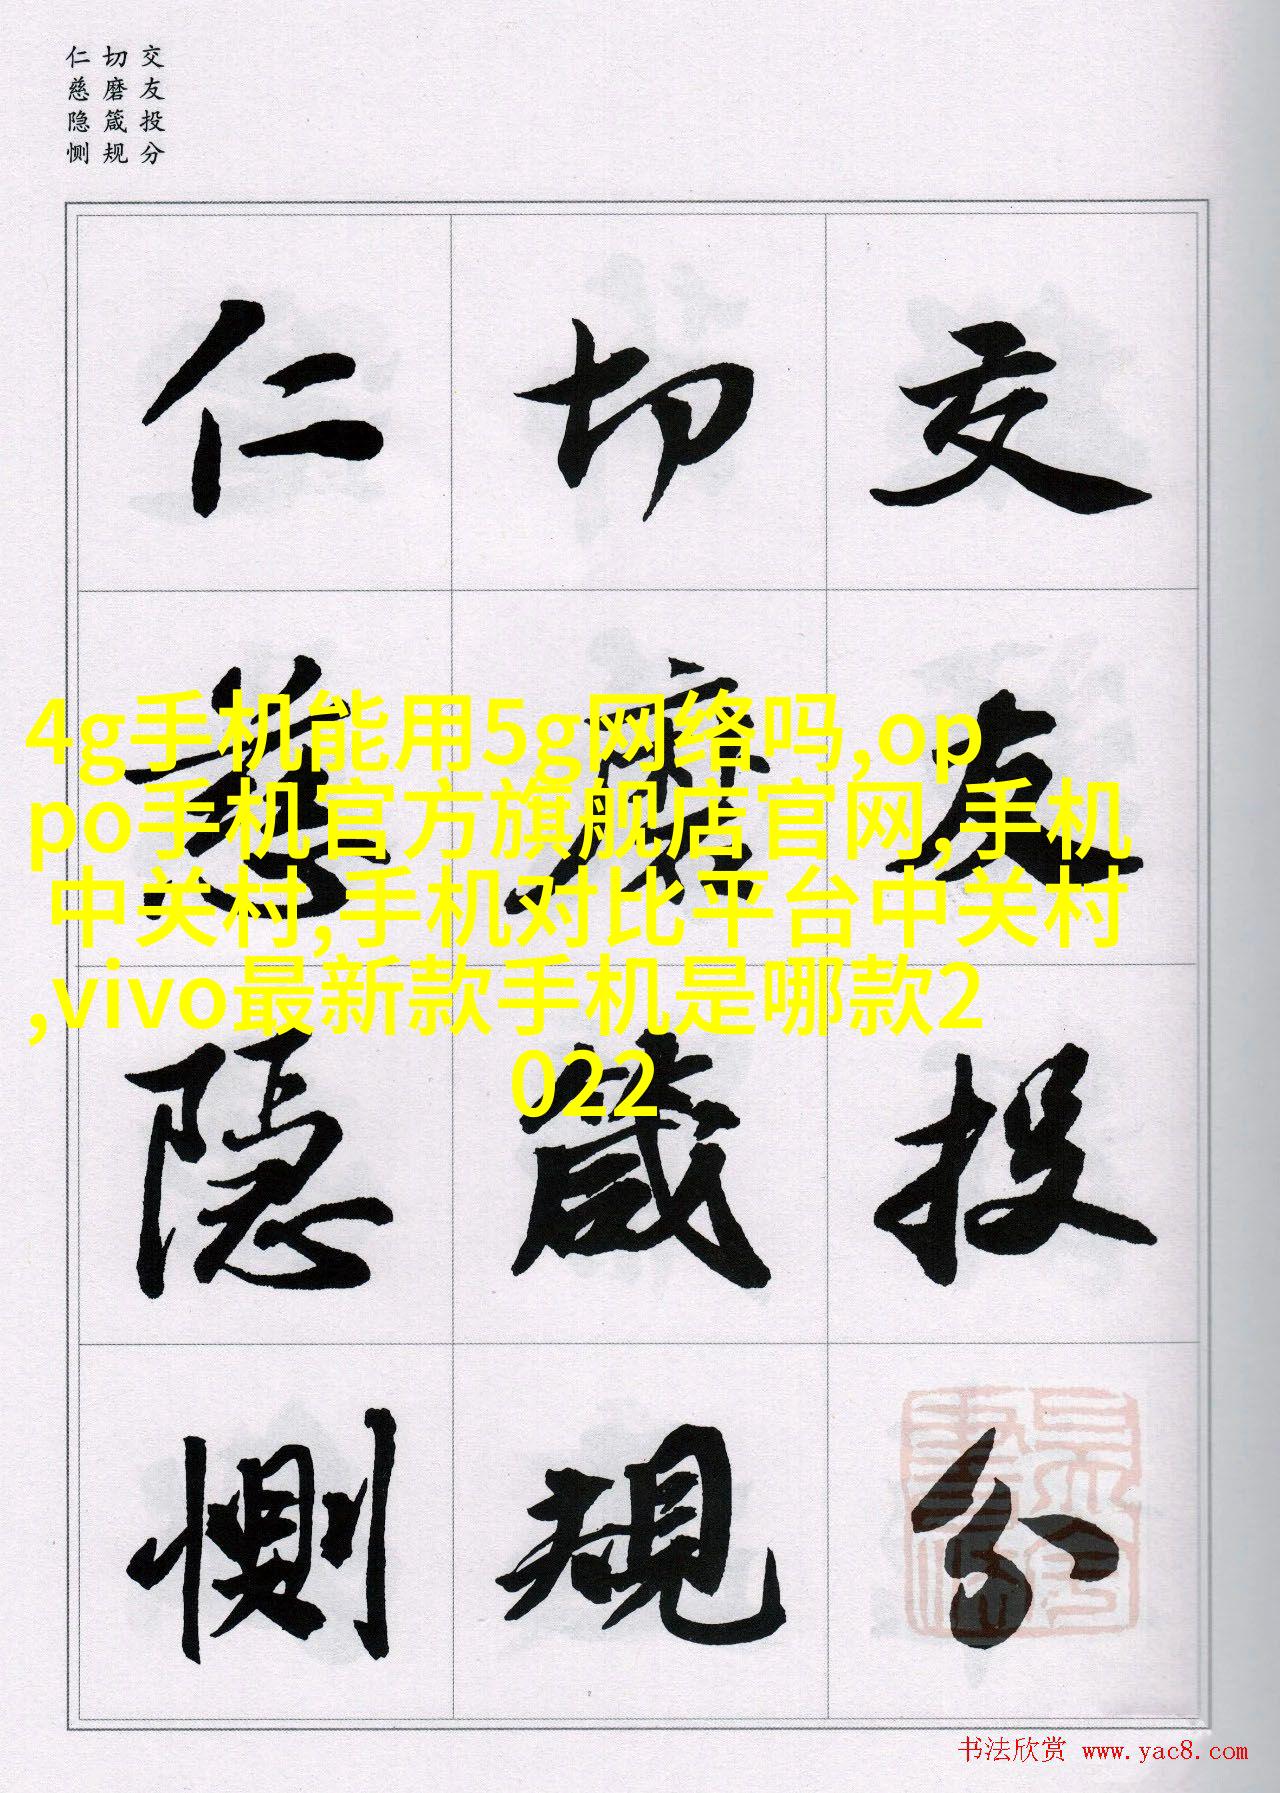 交友投分
切磨箴规
仁慈隐恻
交友投分
切磨箴規
仁慈隐惻
4g手机能用5g网络吗,op
po手机官方旗舰店官网,手机
中关村,手机对比平台中关村
,vivo最新款手机是哪款2
022
书法欣赏 www.yac8.com